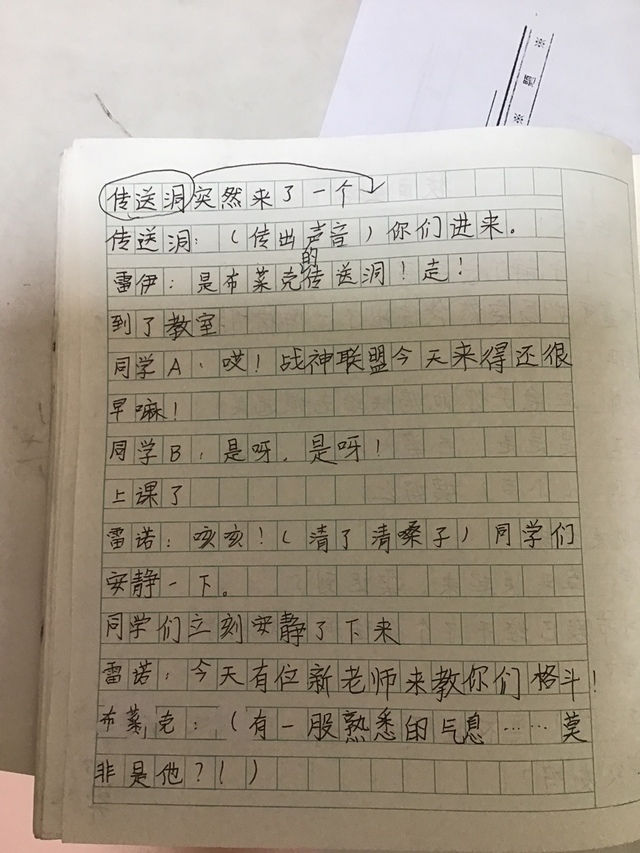 传送洞突然来了一个
传送洞：（传出声音）你们进来。
雷伊：是布莱克的传送洞！走！
到了教室
同学A：哎！战神联盟今天来得还很
早嘛！
同学B：是呀，是呀！
上课了
雷诺：咳亥！（清了清嗓子）同学们
安静一下。
同学们立刻安静了下来
雷诺：今天有位新老师来教你们格斗！
布莱克：（有一股熟悉的气息……莫
非是他？！）